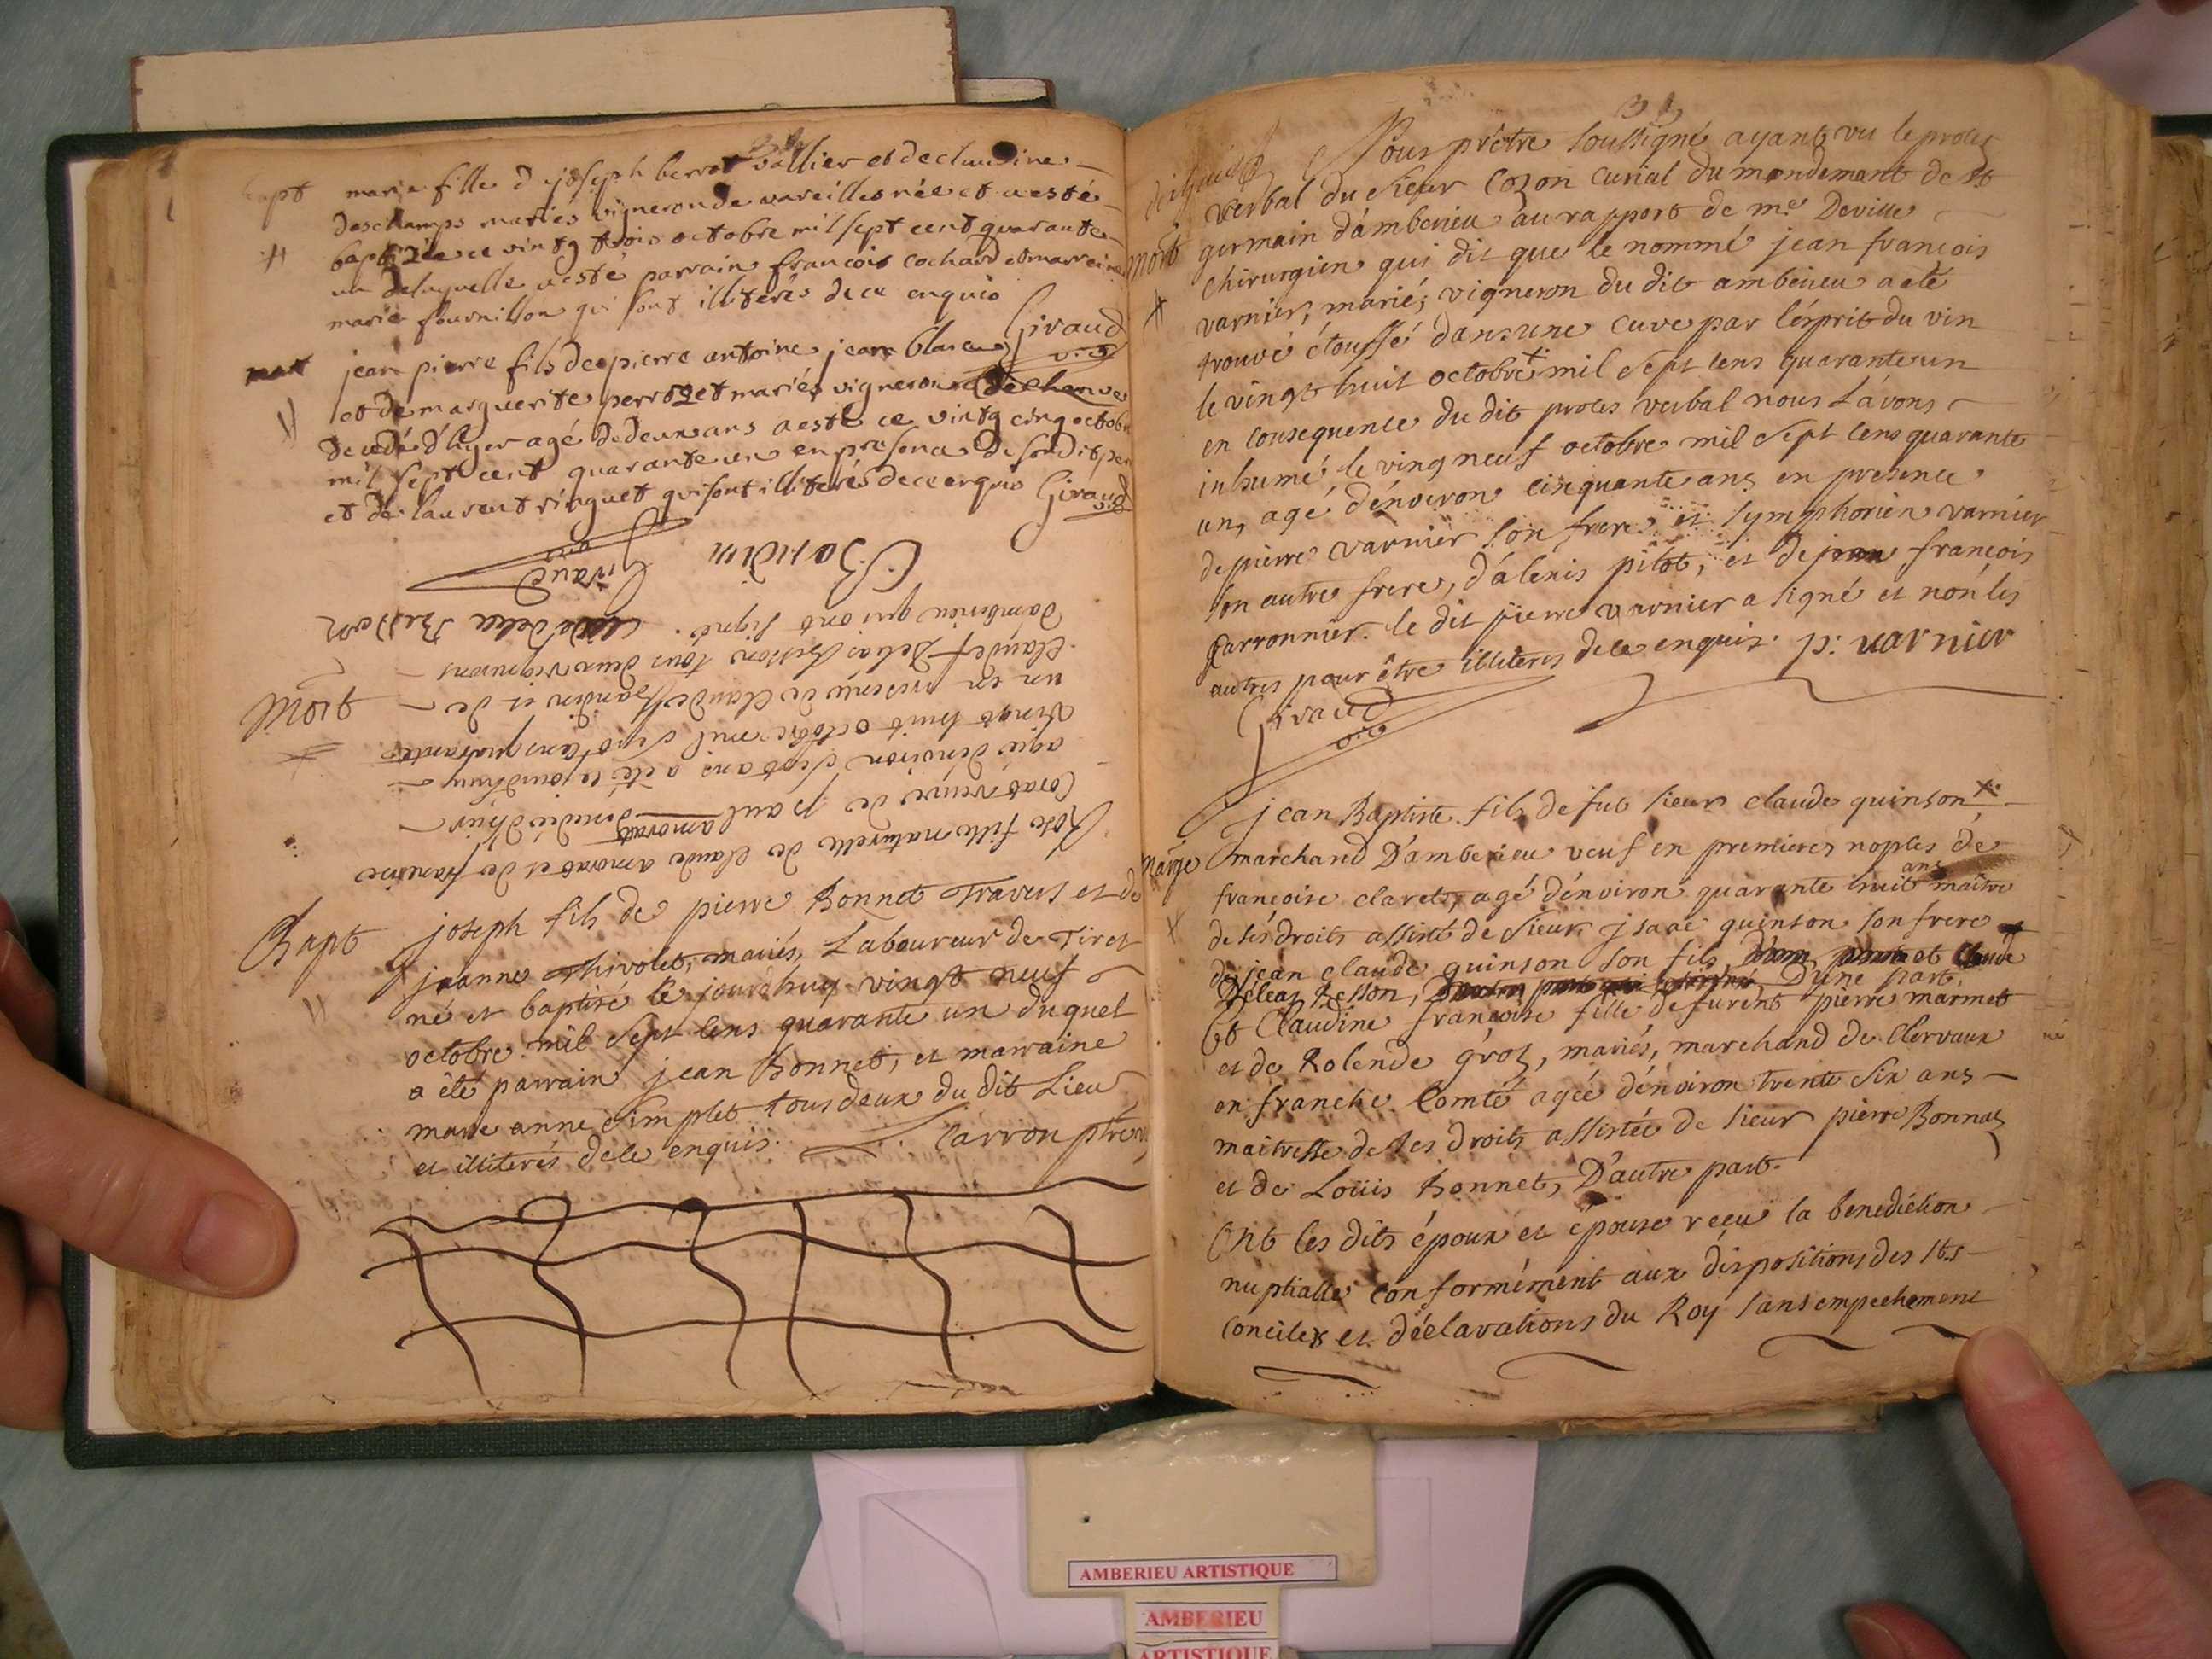 bapt
marie fille de joseph berrot vallier et de claudine
deschamps mariés vigneron de vareilles née et a esté
baptizée ce vintg trois octobre mil sept cent quarante
un de laquelle a esté parrain francois cochard et marreine
marie fournillon qui sont illiterés de ce enquis
Giraud
vic
mort
jean pierre fils de pierre antoine jean blaise
et de marguerite perrozet mariés vigneron
decedé d'hyer agé de deux ans a esté ce vintg cinq octobre
mil sept cent quarante un en presence de son dit pere
et de laurent ringuet qui sont illiterés de ce enquis Giraud
vic
Mort
Rose fille naturelle de claude amorat et de francoise
Corat veuve de paul amorat decedée d'hier
agée d'environ sept ans a été le jourdhuy
vingt huit octobre mil sept cens quarante
un en presence de Claude Bandin et de
Claude f Delas Besson tous deux vignerons
d'ambenieu qui ont signé. Delea Besson
C. Bandin
Giraud
vic
Bapt
joseph fils de pierre Bonnet Travers et de
jeanne Thivolet, mariés, Laboureur de Tiret
né et baptisé le jourd'huy vingt neuf
octobre mil sept cens quarante un duquel
a été parrain jean Bonnet, et marraine
marie anne Simplet tous deux du dit Lieu
et illiterés de ce enquis. Carron ptre
31
mort
Nous prêtre soussigné ayant vu le proces
verbal du sieur Cozon curial du mandement de St
germain d'ambenieu au rapport de me Deville
chirurgien qui dit que le nommé jean francois
varnier, marié, vigneron du dit ambenieu a eté
trouvé étouffé dans une cuve par l'ésprit du vin
le vingt huit octobre mil sept cens quarante un
en consequence du dit proces verbal nous l'avons
inhumé le vingt neuf octobre mil sept cens quarante
un, agé d'énviron cinquante ans en presence
de pierre varnier son frere, et symphorien varnier
son autre frere, d'alexis pilot, et de jean francois
Carronnier. le dit pierre varnier a signé et non les
autres pour être illiterés de ce enquis. p: varnier
Giraud
vic
Mariage
jean Baptiste fils de fut sieur claude quinson
marchand D'amberieu veuf en premieres noples de
francoise claret, agé d'énviron quarante huit ans maître
de ses droits assisté de sieur jsaac quinson son frere
de jean claude quinson son fils, et Claude
Déleaz Besson, D'une part.
Et Claudine francoise fille de furent pierre marmet
et de Rolende groz, mariés, marchand de Clervaux
en franche Comté agée d'énviron trente six ans
maitresse de ses droits assistée de sieur pierre Bonnet
et de Loüis Bonnet, D'autre part.
Ont les dits époux et épouse recu la benediction
nuptialle conformément aux dispositions des Sts
conciles et déclarations du Roy sans empechement
AMBERIEU ARTISTIQUE
AMBERIEU
ARTISTIQUE